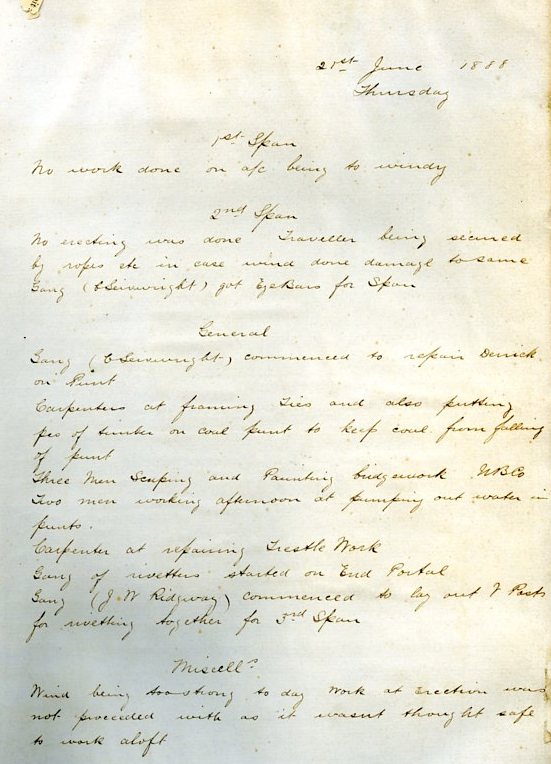 21st June 1888
Thursday
1st Span
No work done on a/c being to windy
2nd Span
No erecting was done Traveller being secured
by ropes etc in case wind done damage to same
Gang (C Seivwright) got Eye Bars for Span
General
Gang (C Seivwright) commenced to repair Derrick
on Punt
Carpenters at framing Ties and also putting
pes of timber on coal punt to keep coal from falling
of punt
Three Men Scraping and Painting bridgework UBCo
Two men working afternoon at pumping out water in
punts.
Carpenter at repairing Trestle Work
Gang of rivetters started on End Portal
Gang (J. W Ridgway) commenced to lay out V Posts
for rivetting together for 3rd Span
Miscells
Wind being too strong to day Work at Erection was
not proceeded with as it wasnt thought safe
to work aloft